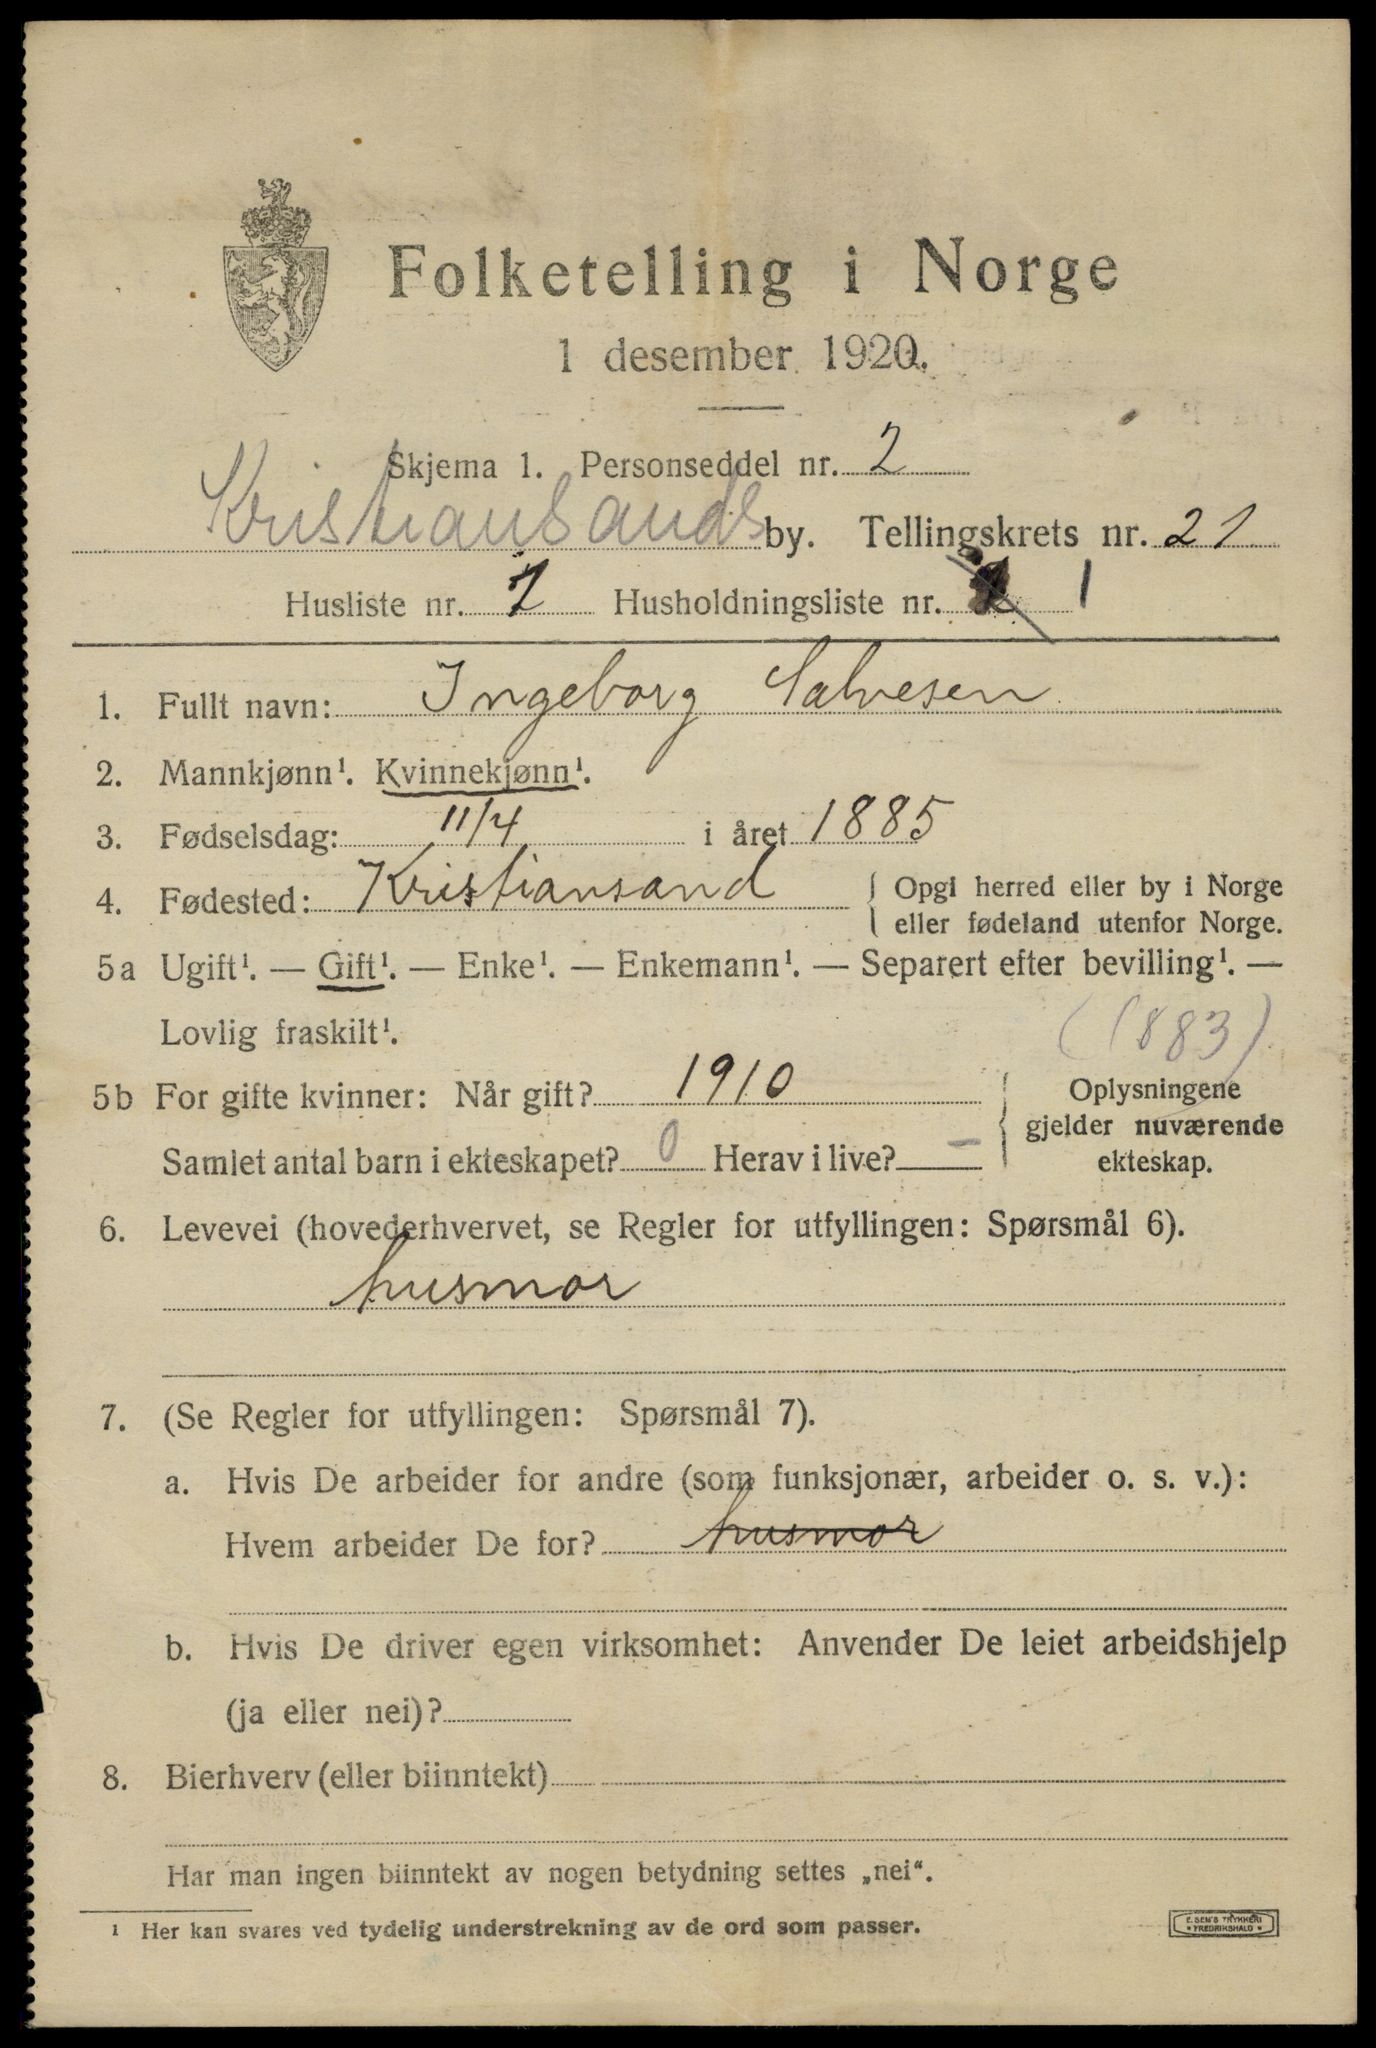 Folketelling i Norge
1 desember 1920.
Skjema 1. Personseddel nr. 2
Kristiansands by. Tellingskrets nr. 21
Husliste nr. 7 Husholdningsliste nr. 1
1. Fullt navn: Ingeborg Salvesen
2. Mannkjønn¹. Kvinnekjønn¹.
3. Fødselsdag: 11/4 i året 1885
4. Fødested: Kristiansand { Opgi herred eller by i Norge
eller fødeland utenfor Norge.
5a Ugift¹. — Gift¹. — Enke¹. — Enkemann¹. — Separert efter bevilling¹. —
Lovlig fraskilt¹.
(1883)
5b For gifte kvinner: Når gift? 1910
Samlet antal barn i ekteskapet? 0 Herav i live? —
{ Oplysningene
gjelder nuværende
ekteskap.
6. Levevei (hovederhvervet, se Regler for utfyllingen: Spørsmål 6).
husmor
7. (Se Regler for utfyllingen: Spørsmål 7).
a. Hvis De arbeider for andre (som funksjonær, arbeider o. s. v.):
Hvem arbeider De for? husmor
b. Hvis De driver egen virksomhet: Anvender De leiet arbeidshjelp
(ja eller nei)?
8. Bierhverv (eller biinntekt)
Har man ingen biinntekt av nogen betydning settes „nei“.
¹ Her kan svares ved tydelig understrekning av de ord som passer.
E. SEM'S TRYKKERI
FREDRIKSHALD